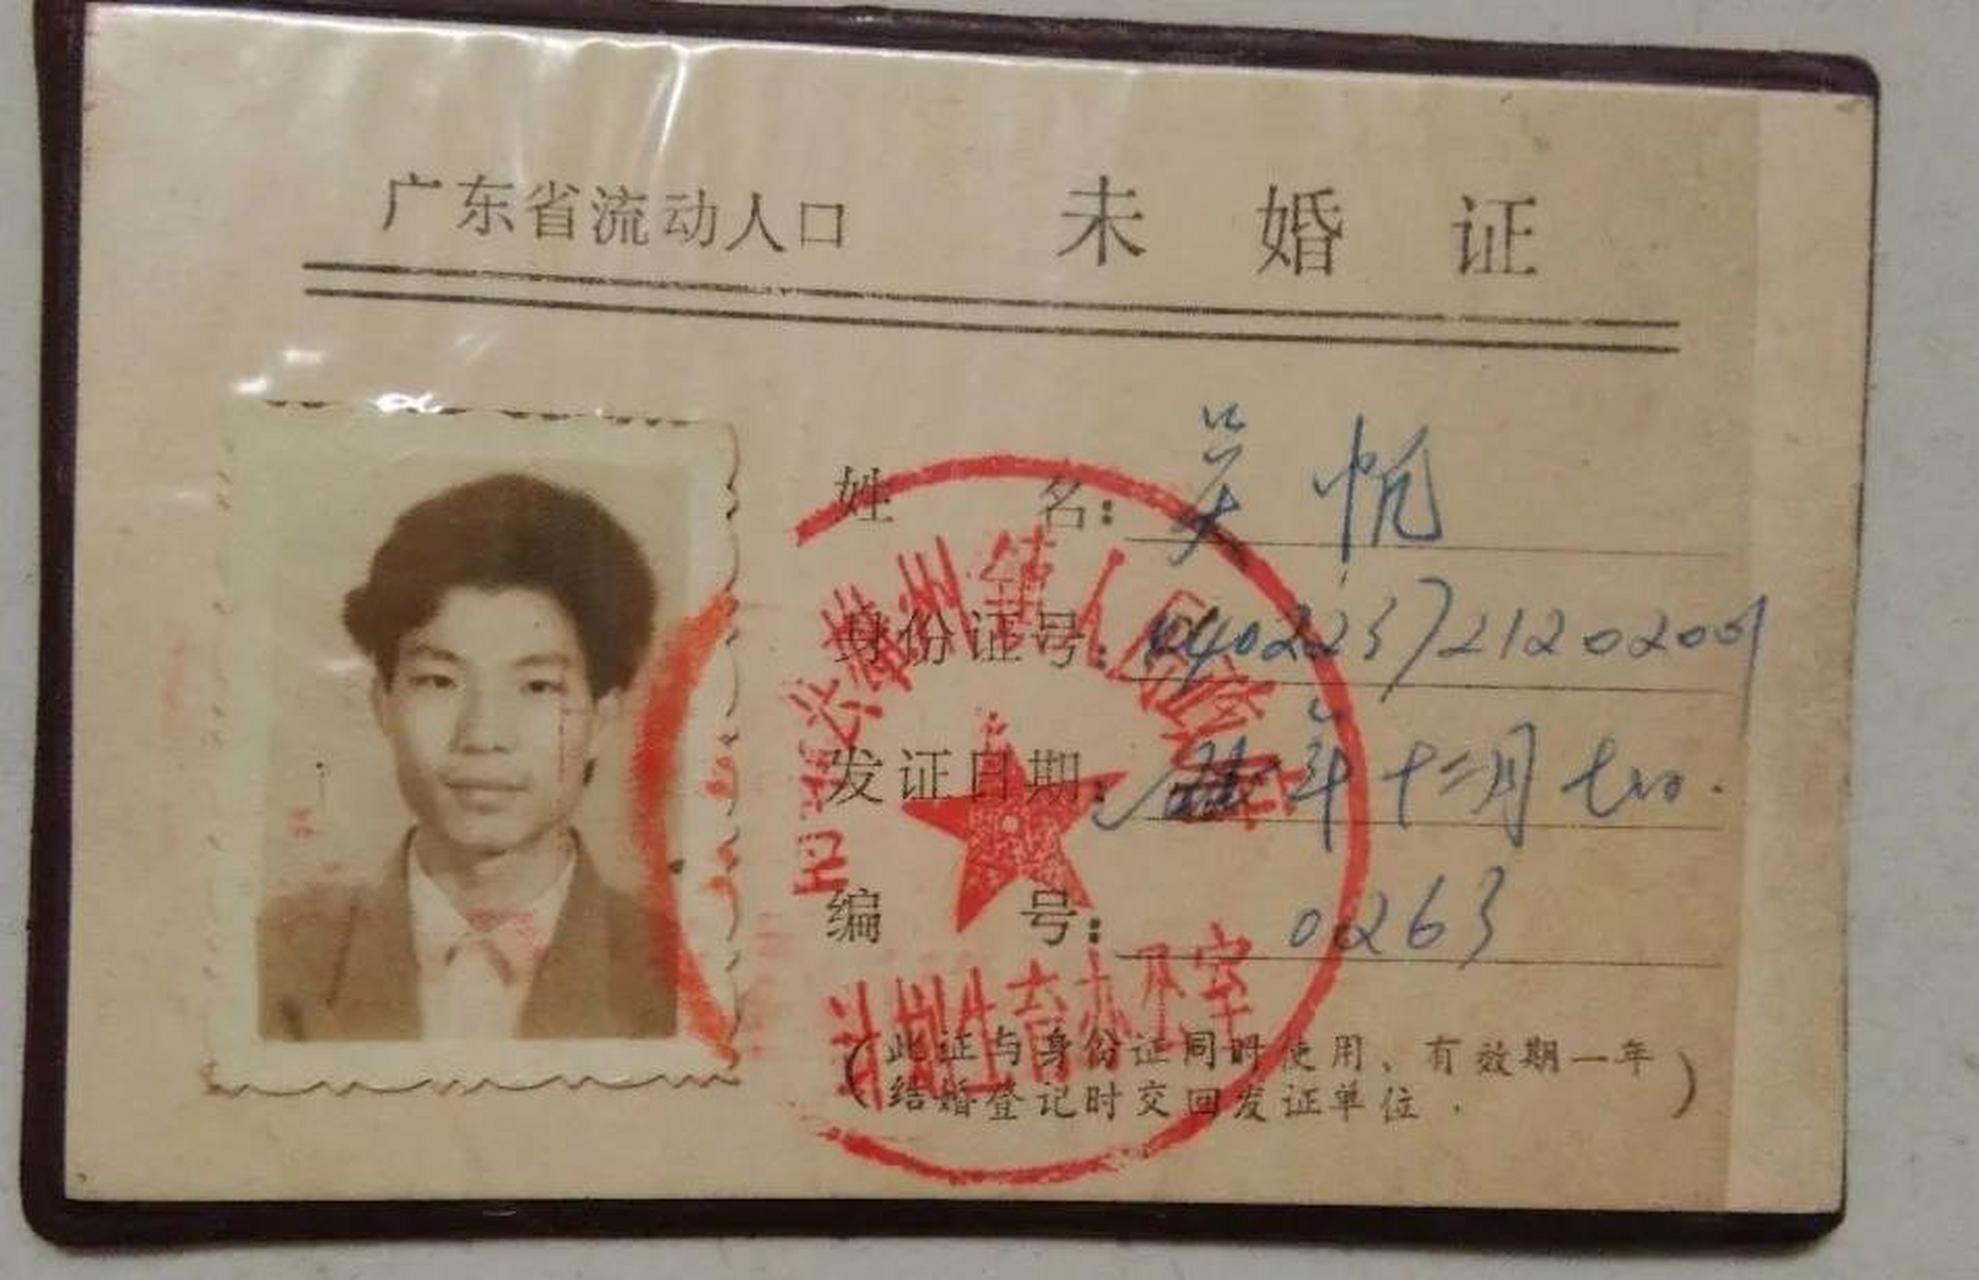 广东省流动人口 未婚证
姓名: 吴帆
身份证号: 440223721202001
发证日期: 年十二月七日.
编号: 0263
(此证与身份证同时使用、有效期一年
结婚登记时交回发证单位.)
计划生育办公室